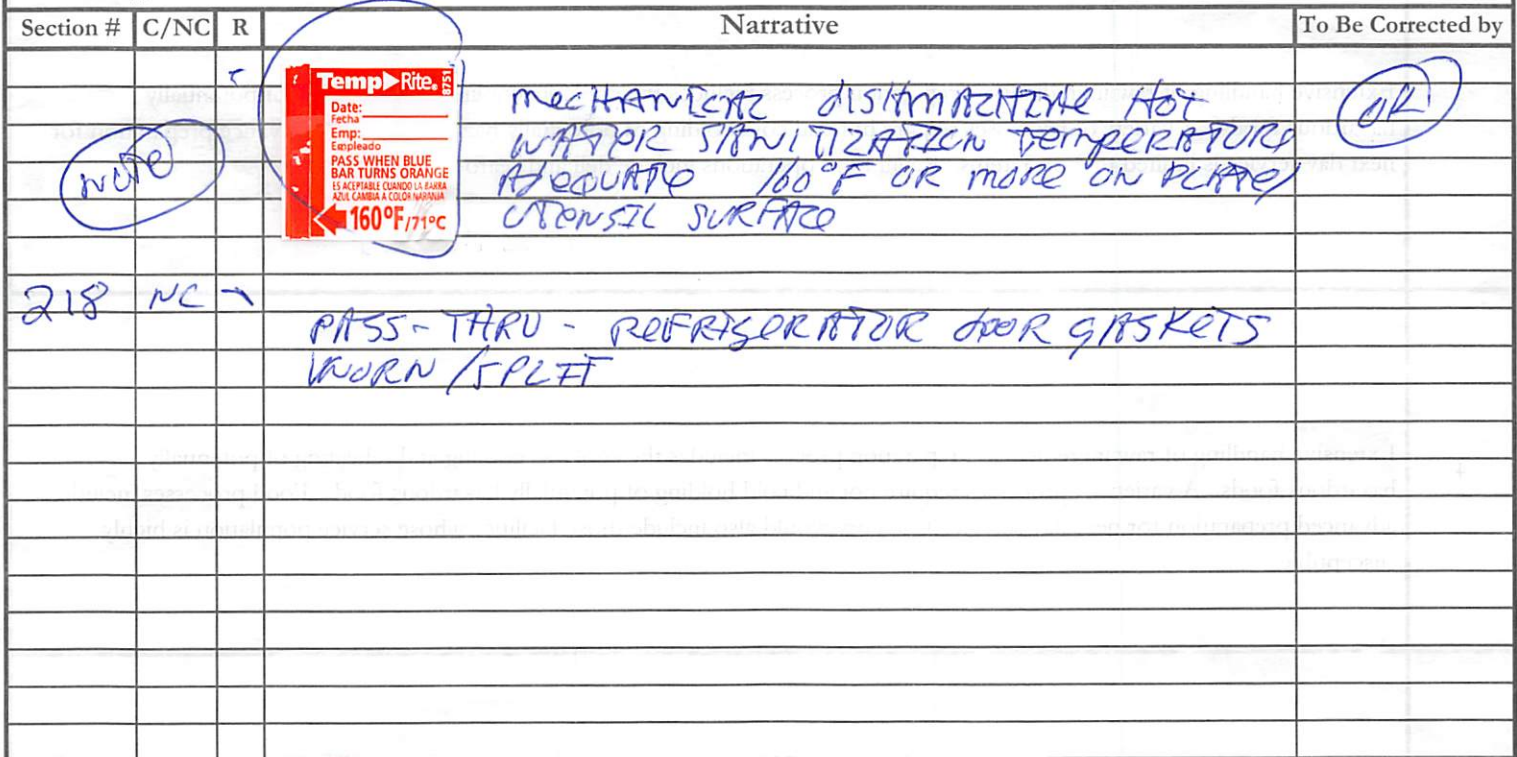 Section # C/NC R Narrative To Be Corrected by
NOTE
Temp Rite® 8751
Date:
Fecha
Emp:
Empleado
PASS WHEN BLUE
BAR TURNS ORANGE
ES ACEPTABLE CUANDO LA BARRA
AZUL CAMBIA A COLOR NARANJA
160°F/71°C
MECHANICAL DISHMACHINE HOT
WATER SANITIZATION TEMPERATURE
ADEQUATE 160°F OR MORE ON PLATE/
UTENSIL SURFACE
OK!
218 NC
PASS-THRU - REFRIGERATOR DOOR GASKETS
WORN/SPLIT